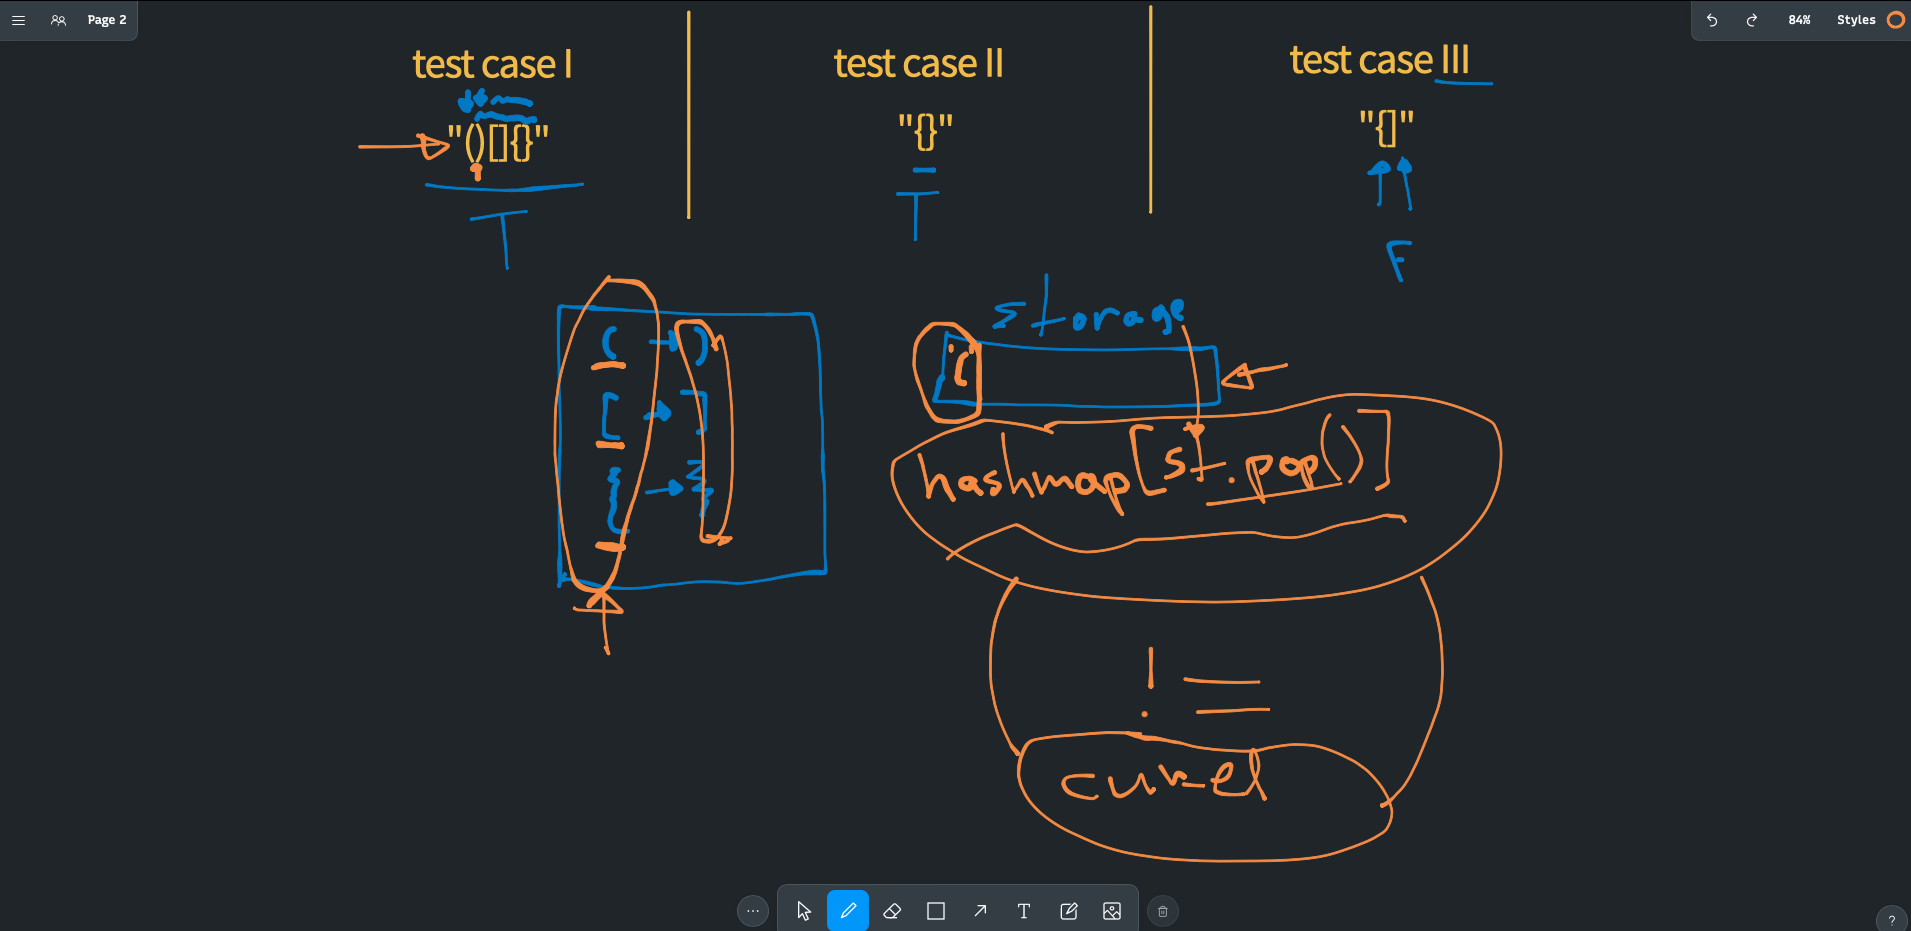 Page 2
84% Styles
test case I
"()[]{}"
T
test case II
"{}"
T
test case III
"{]"
F
( → )
[ → ]
{ → }
storage
"("
hashmap[st.pop()]
! ==
T
?